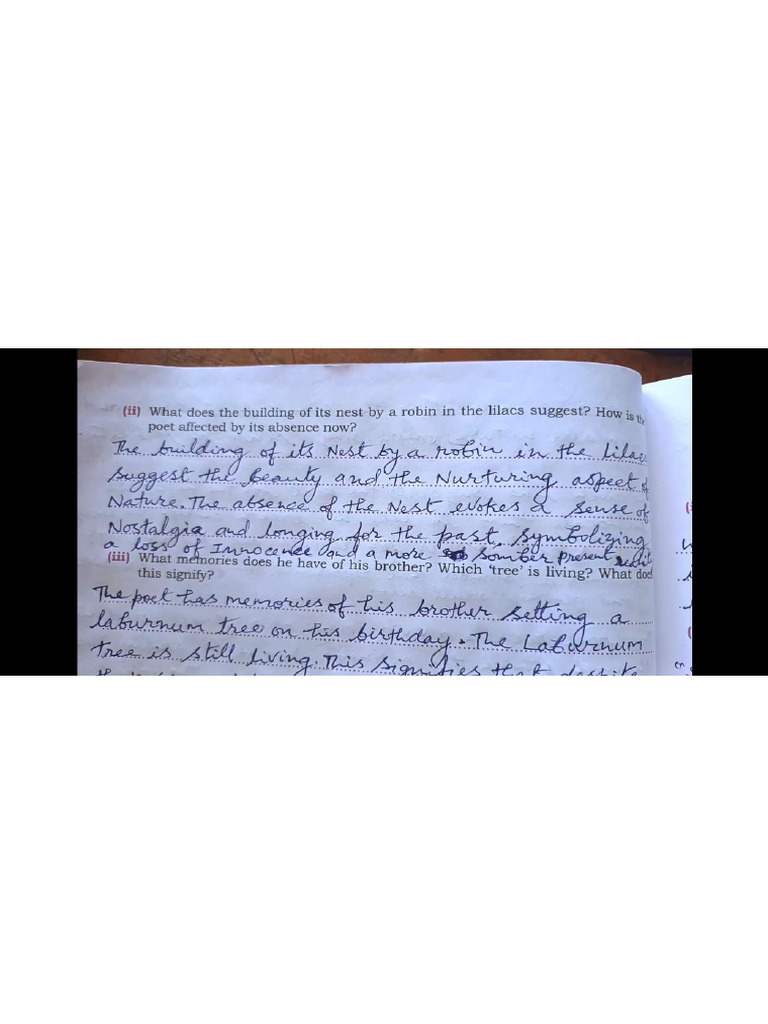 (ii) What does the building of its nest by a robin in the lilacs suggest? How is the
poet affected by its absence now?
The building of its Nest by a robin in the lilacs
suggest the beauty and the Nurturing aspect of
Nature. The absence of the Nest evokes a sense of
Nostalgia and longing for the past. Symbolizing
a loss of Innocence and a more somber present
(iii) What memories does he have of his brother? Which 'tree' is living? What does
this signify?
The poet has memories of his brother setting a
laburnum tree on his birthday. The Laburnum
tree is still living. This signifies that despite